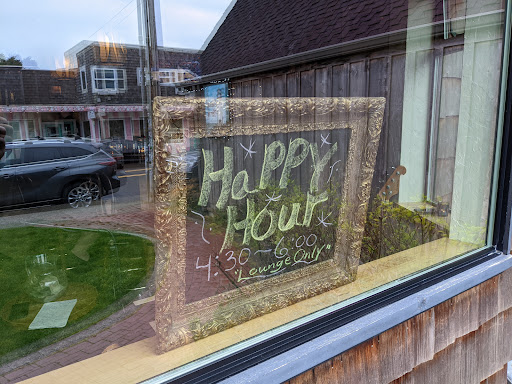 Happy
Hour
4:30-6:00
"Lounge Only"